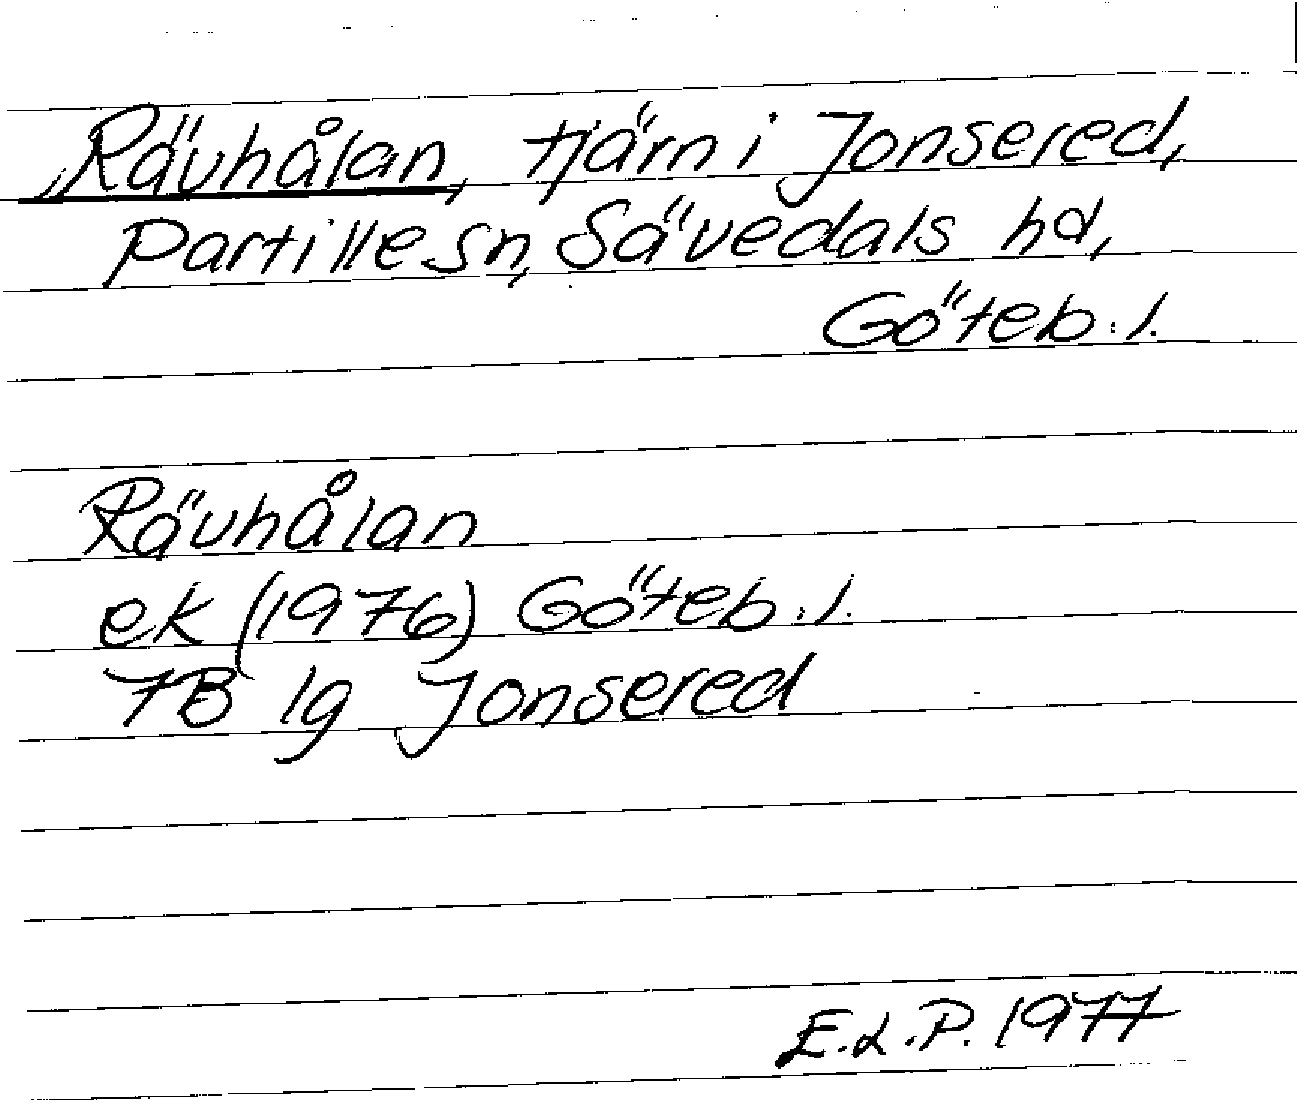 Rävhålan, tjärn i Jonsered,
Partille sn, Sävedals hd,
Göteb. l.
Rävhålan
ek (1976) Göteb. l.
7B 1g Jonsered
E.L.P. 1977